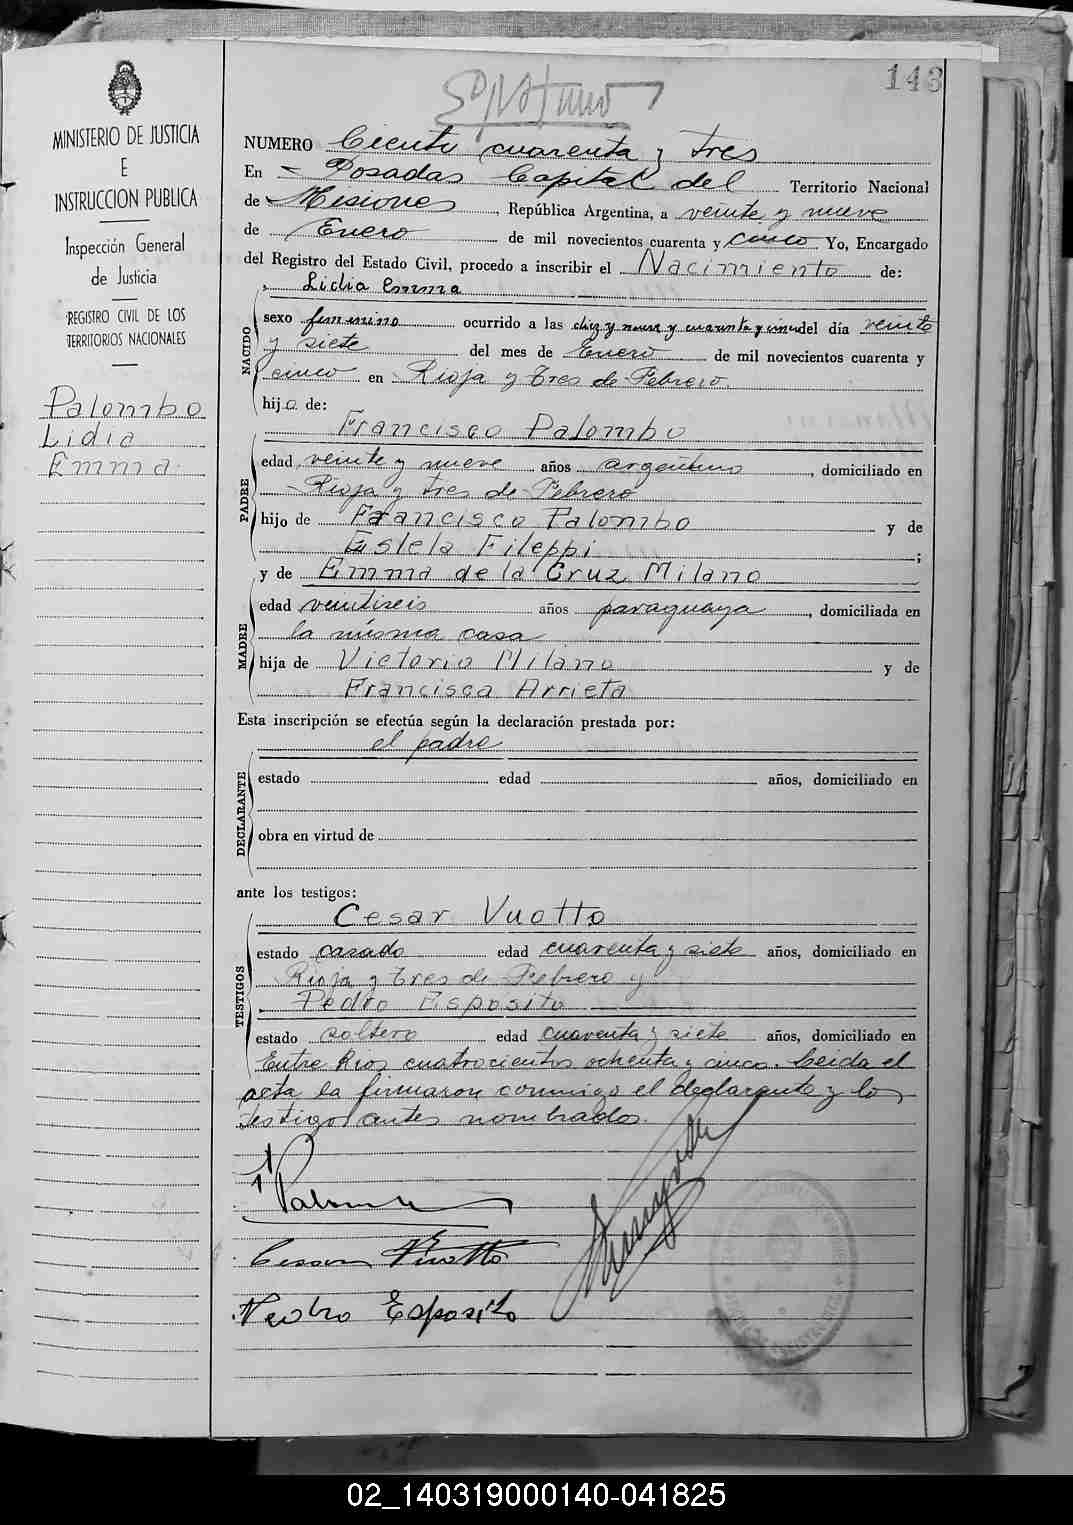 143
NUMERO Ciento cuarenta y tres
MINISTERIO DE JUSTICIA
E
INSTRUCCION PUBLICA
Inspección General
de Justicia
REGISTRO CIVIL DE LOS
TERRITORIOS NACIONALES
Palombo
Lidia
Emma
En Posadas Capital del Territorio Nacional
de Misiones, República Argentina, a veinte y nueve
de Enero de mil novecientos cuarenta y cinco Yo, Encargado
del Registro del Estado Civil, procedo a inscribir el Nacimiento de:
Lidia Emma
NACIDO
sexo femenino ocurrido a las diez y nueve y cuarenta y cinco del día veinte
y siete del mes de Enero de mil novecientos cuarenta y
cinco en Rioja y Tres de Febrero.
hija de:
Francisco Palombo
PADRE
edad veinte y nueve años argentino, domiciliado en
Rioja y tres de Febrero
hijo de Francisco Palombo y de
Estela Fileppi;
y de Emma de la Cruz Milano
MADRE
edad veintiseis años paraguaya, domiciliada en
la misma casa
hija de Victorio Milano y de
Francisca Arrieta
Esta inscripción se efectúa según la declaración prestada por:
el padre
DECLARANTE
estado edad años, domiciliado en
obra en virtud de
ante los testigos:
Cesar Vuotto
TESTIGOS
estado casado edad cuarenta y siete años, domiciliado en
Rioja y Tres de Febrero y
Pedro Esposito
estado soltero edad cuarenta y siete años, domiciliado en
Entre Rios cuatrocientos ochenta y cinco. Leida el
acta la firmaron conmigo el declarante y los
testigos antes nombrados.
Palombo
Cesar Vuotto
Pedro Esposito
02_140319000140-041825